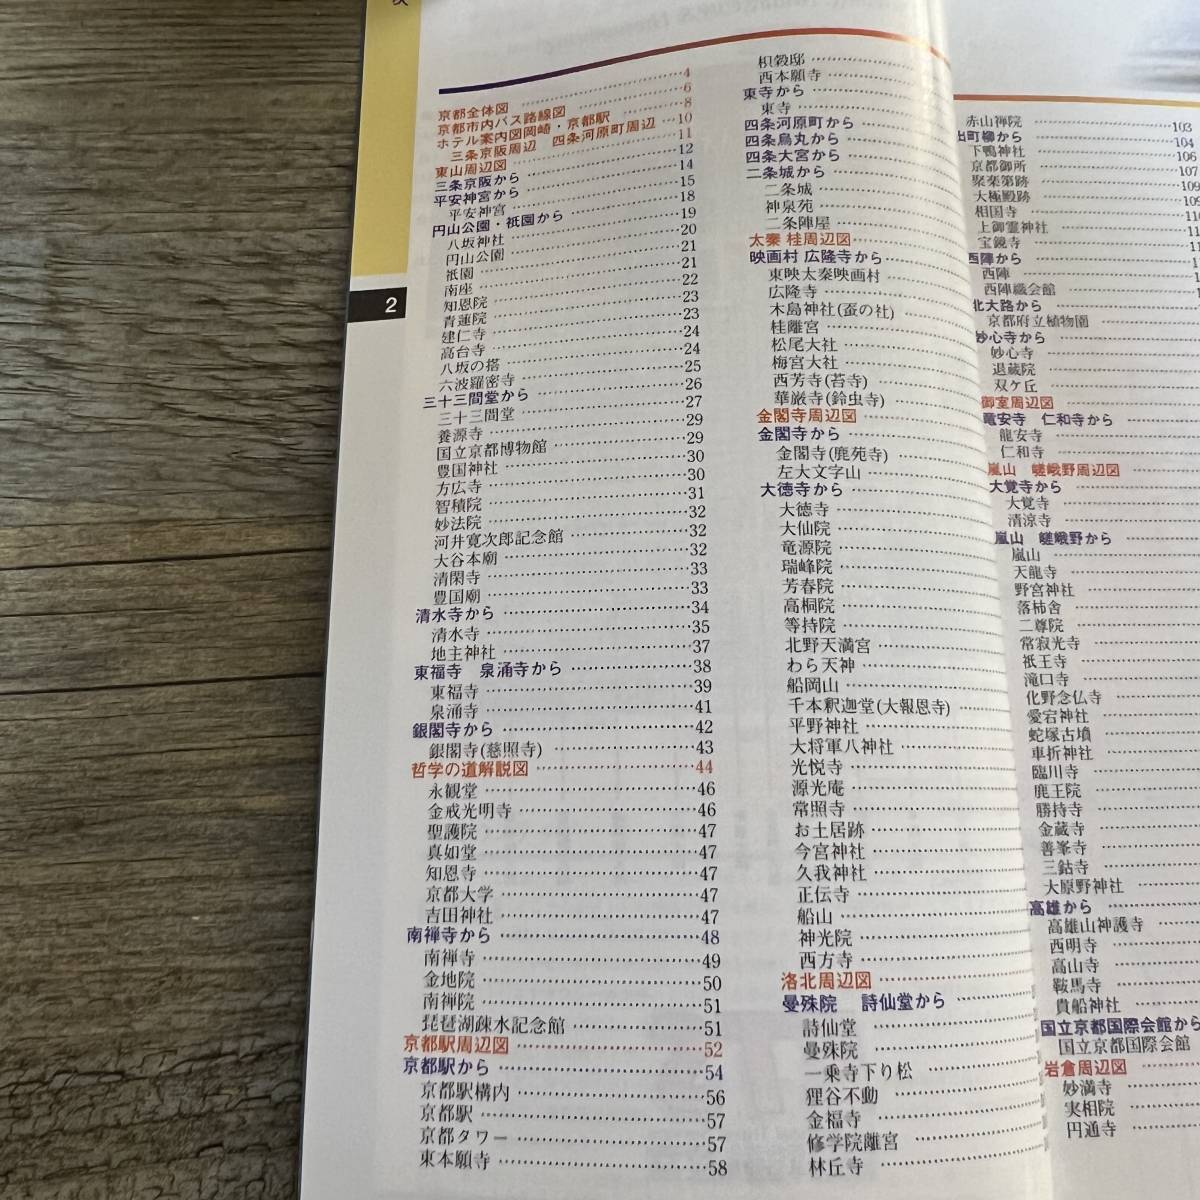 次
2
京都全体図 4
京都市内バス路線図 6
ホテル案内図岡崎・京都駅 8
三条京阪周辺 四条河原町周辺 10
東山周辺図 11
三条京阪から 12
平安神宮から 14
平安神宮 15
円山公園・祇園から 18
八坂神社 19
円山公園 20
祇園 21
南座 21
知恩院 22
青蓮院 23
建仁寺 23
高台寺 24
八坂の搭 24
六波羅密寺 25
三十三間堂から 26
三十三間堂 27
養源寺 29
国立京都博物館 29
豊国神社 30
方広寺 30
智積院 31
妙法院 32
河井寛次郎記念館 32
大谷本廟 32
清閑寺 33
豊国廟 33
清水寺から 34
清水寺 35
地主神社 37
東福寺 泉涌寺から 38
東福寺 39
泉涌寺 41
銀閣寺から 42
銀閣寺(慈照寺) 43
哲学の道解説図 44
永観堂 46
金戒光明寺 46
聖護院 47
真如堂 47
知恩寺 47
京都大学 47
吉田神社 47
南禅寺から 48
南禅寺 49
金地院 50
南禅院 51
琵琶湖疎水記念館 51
京都駅周辺図 52
京都駅から 54
京都駅構内 56
京都駅 57
京都タワー 57
東本願寺 58
枳殻邸
西本願寺
東寺から
東寺
四条河原町から
四条烏丸から
四条大宮から
二条城から
二条城
神泉苑
二条陣屋
太秦 桂周辺図
映画村 広隆寺から
東映太秦映画村
広隆寺
木島神社(蚕の社)
桂離宮
松尾大社
梅宮大社
西芳寺(苔寺)
華厳寺(鈴虫寺)
金閣寺周辺図
金閣寺から
金閣寺(鹿苑寺)
左大文字山
大徳寺から
大徳寺
大仙院
竜源院
瑞峰院
芳春院
高桐院
等持院
北野天満宮
わら天神
船岡山
千本釈迦堂(大報恩寺)
平野神社
大将軍八神社
光悦寺
源光庵
常照寺
お土居跡
今宮神社
久我神社
正伝寺
船山
神光院
西方寺
洛北周辺図
曼殊院 詩仙堂から
詩仙堂
曼殊院
一乗寺下り松
狸谷不動
金福寺
修学院離宮
林丘寺
赤山禅院 103
出町柳から 104
下鴨神社 106
京都御所 107
聚楽第跡 109
大極殿跡 109
相国寺
上御霊神社
宝鏡寺
西陣から
西陣
西陣織会館
北大路から
京都府立植物園
妙心寺から
妙心寺
退蔵院
双ケ丘
御室周辺図
竜安寺 仁和寺から
龍安寺
仁和寺
嵐山 嵯峨野周辺図
大覚寺から
大覚寺
清涼寺
嵐山 嵯峨野から
嵐山
天龍寺
野宮神社
落柿舎
二尊院
常寂光寺
祇王寺
滝口寺
化野念仏寺
愛宕神社
蛇塚古墳
車折神社
臨川寺
鹿王院
勝持寺
金蔵寺
善峯寺
三鈷寺
大原野神社
高雄から
高雄山神護寺
西明寺
高山寺
鞍馬寺
貴船神社
国立京都国際会館から
国立京都国際会館
岩倉周辺図
妙満寺
実相院
円通寺